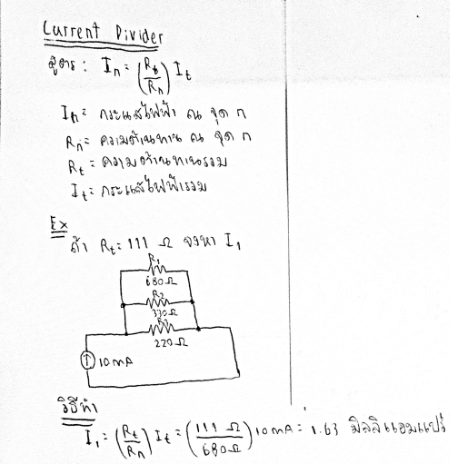 Current Divider
สูตร : Iₙ = (Rₜ/Rₙ) Iₜ
Iₙ = กระแสไฟฟ้า ณ จุด n
Rₙ = ความต้านทาน ณ จุด n
Rₜ = ความต้านทานรวม
Iₜ = กระแสไฟฟ้ารวม
Ex
ถ้า Rₜ = 111 Ω จงหา I₁
R₁
680 Ω
R₂
330 Ω
R₃
220 Ω
10 mA
วิธีทำ
I₁ = (Rₜ/Rₙ) Iₜ = (111 Ω/680 Ω) 10 mA = 1.63 มิลลิแอมแปร์